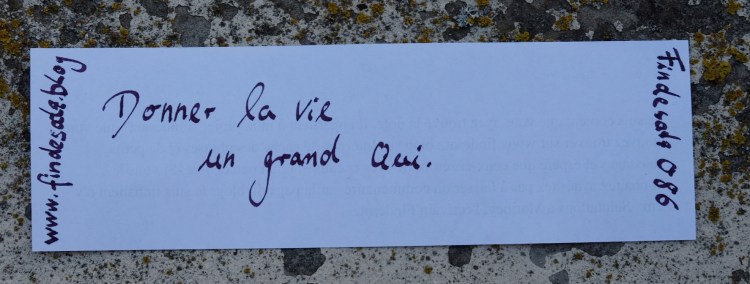 www.findesate.blog
Donner la vie
un grand Qui.
Findesate 086